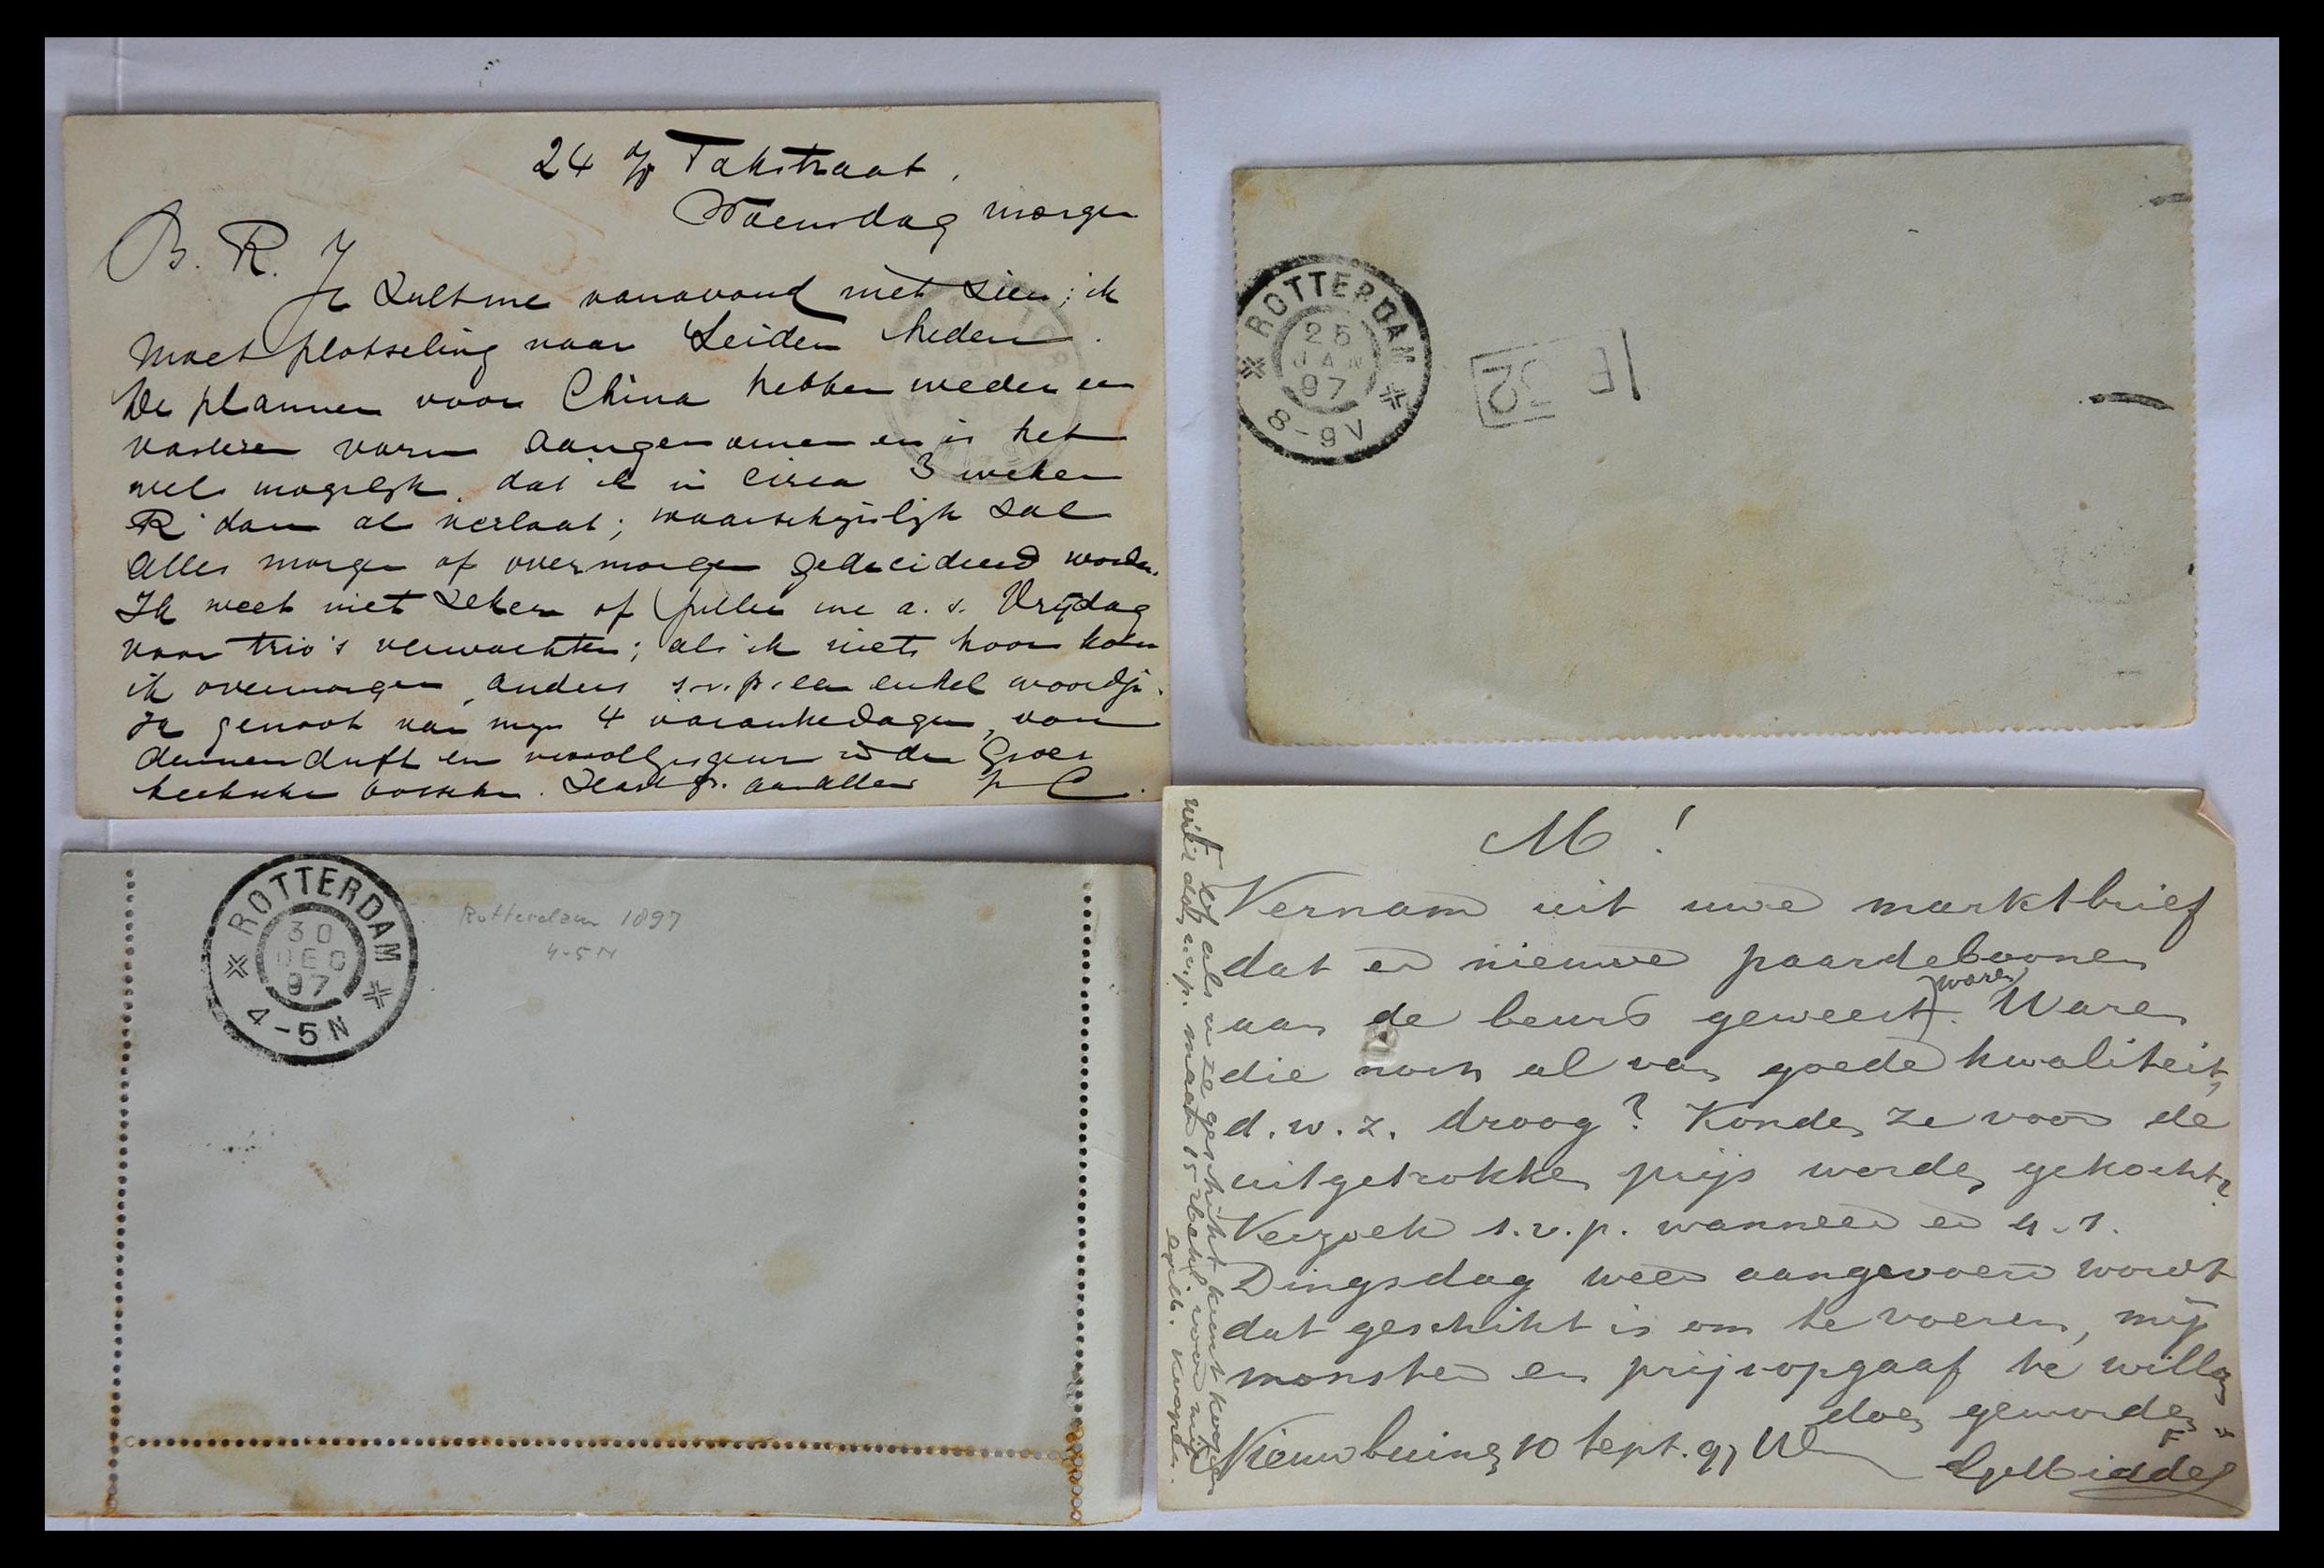 24 Takstraat.
Woensdag morgen
B. R.
Je zult me vanavond niet zien; ik
moet plotseling naar Leiden heden.
De plannen voor China hebben weder een
vasteren vorm aangenomen en is het
wel mogelijk, dat ik in circa 3 weken
R'dam al verlaat; waarschijnlijk zal
alles morgen of overmorgen gedecideerd worden.
Ik weet niet zeker of jullie me a. s. Vrijdag
voor trio's verwachten; als ik niets hoor kom
ik overmorgen, anders s.v.p. een enkel woordje.
Ik genoot van mijn 4 vacantiedagen, van
dennenduft en in den Groes
beeksche bosschen. aan allen C.
ROTTERDAM
25
JAN
97
8-9V
ROTTERDAM
30
DEC
97
4-5N
Rotterdam 1897
4-5N
M!
Vernam uit uwe marktbrief
dat er nieuwe paardeboonen
aan de beurs geweest waren. Waren
die noch al van goede kwaliteit,
d.w.z. droog? Konden ze voor de
uitgetrokken prijs worden gekocht?
Verzoek s.v.p. wanneer er a.s.
Dingsdag weer aangevoerd wordt
dat geschikt is om te voeren, mij
monster en prijsopgaaf te willen
doen geworden
Nieuw buinen 10 Sept. 97
of als u ze geschikt kunt koopen
s.v.p. maar 15 voor mij
koopen.